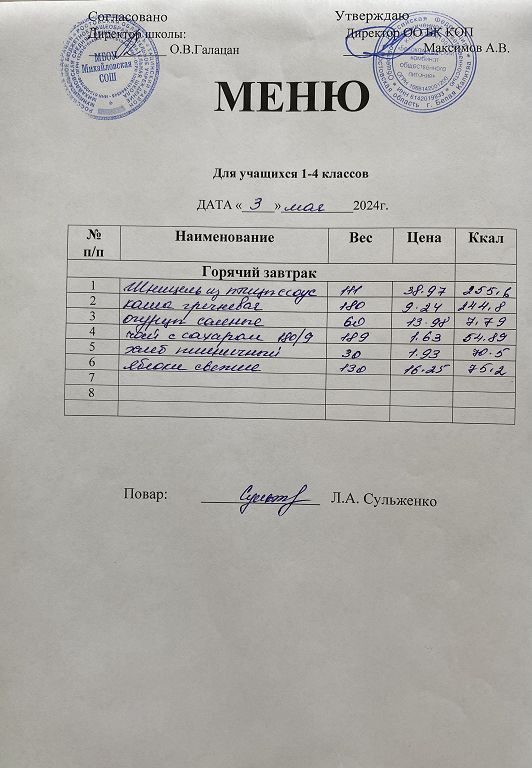 Согласовано Утверждаю
Директор школы: Директор ОО БК КОП
О.В.Галацан Максимов А.В.
МБОУ
Михайловская
СОШ
комбинат
общественного
питания
МЕНЮ
Для учащихся 1-4 классов
ДАТА « 3 » мая 2024г.
№ п/п Наименование Вес Цена Ккал
Горячий завтрак
1 Шницель из птицы соус 111 38.97 255,6
2 каша гречневая 180 9.24 244,8
3 огурцы соленые 60 13.98 7.79
4 чай с сахаром 180/9 189 1.63 54.89
5 хлеб пшеничный 30 1.93 70.5
6 яблоки свежие 130 16.25 75,2
7
8
Повар: Л.А. Сульженко